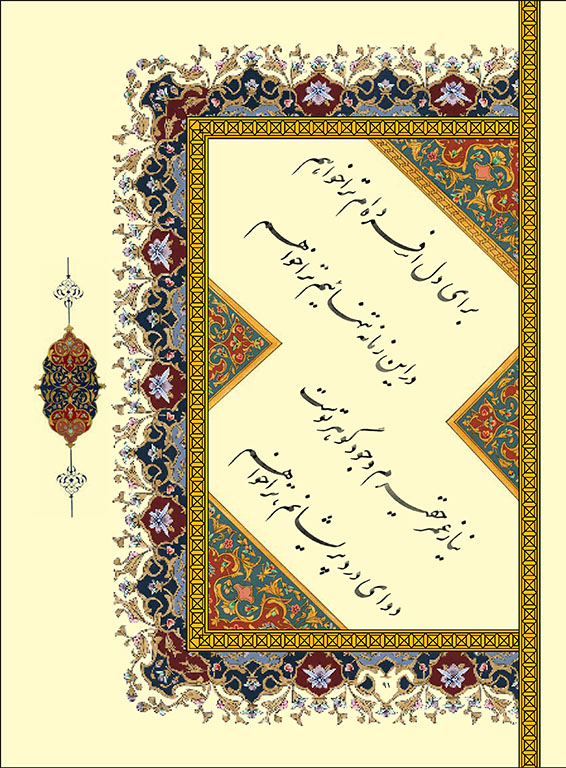 برای دل افسرده‌ام ترا خواهم
در این زمانه تنهائیم ترا خواهم
نیاز عمر حقیرم وجود گوهر توست
دوای درد پریشانیم، ترا خواهم
۹۱